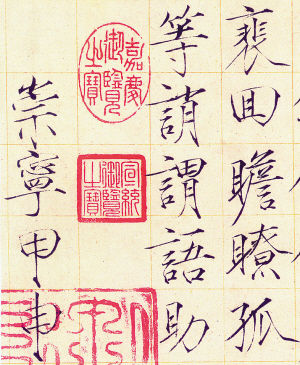 裵回瞻瞭孤
等誚謂語助
崇寧甲申
嘉慶御覽之寶
宣統御覽之寶